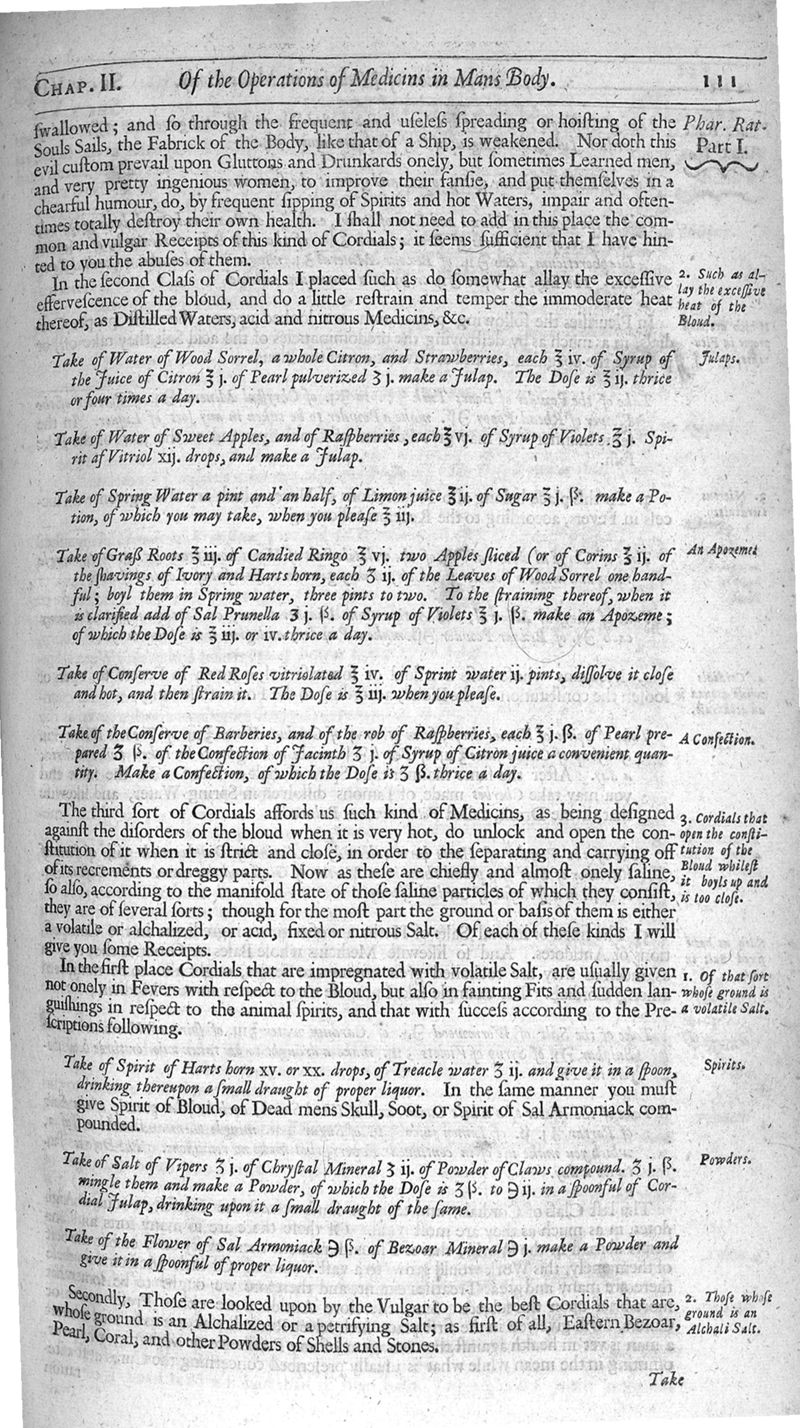 CHAP. II. Of the Operations of Medicins in Mans Body. 111
ſwallowed; and ſo through the frequent and uſeleſs ſpreading or hoiſting of the
Souls Sails, the Fabrick of the Body, like that of a Ship, is weakened. Nor doth this
evil cuſtom prevail upon Gluttons and Drunkards onely, but ſometimes Learned men,
and very pretty ingenious women, to improve their fanſie, and put themſelves in a
chearful humour, do, by frequent ſipping of Spirits and hot Waters, impair and often-
times totally deſtroy their own health. I ſhall not need to add in this place the com-
mon and vulgar Receipts of this kind of Cordials; it ſeems ſufficient that I have hin-
ted to you the abuſes of them.
Phar. Rat.
Part I.
In the ſecond Claſs of Cordials I placed ſuch as do ſomewhat allay the exceſſive
efferveſcence of the bloud, and do a little reſtrain and temper the immoderate heat
thereof, as Diſtilled Waters, acid and nitrous Medicins, &c.
2. Such as al-
lay the exceſſive
heat of the
Bloud.
Take of Water of Wood Sorrel, a whole Citron, and Strawberries, each ℥ iv. of Syrup of
the Juice of Citron ℥ j. of Pearl pulverized ʒ j. make a Julap. The Doſe is ℥ ij. thrice
or four times a day.
Julaps.
Take of Water of Sweet Apples, and of Raſpberries, each ℥ vj. of Syrup of Violets ℥ j. Spi-
rit af Vitriol xij. drops, and make a Julap.
Take of Spring Water a pint and an half, of Limon juice ℥ ij. of Sugar ℥ j. ß. make a Po-
tion, of which you may take, when you pleaſe ℥ iij.
Take of Graß Roots ℥ iij. of Candied Ringo ℥ vj. two Apples ſliced (or of Corins ℥ ij. of
the ſhavings of Ivory and Harts horn, each ʒ ij. of the Leaves of Wood Sorrel one hand-
ful; boyl them in Spring water, three pints to two. To the ſtraining thereof, when it
is clarified add of Sal Prunella ʒ j. ß. of Syrup of Violets ℥ j. ß. make an Apozeme;
of which the Doſe is ℥ iij. or iv. thrice a day.
An Apozeme.
Take of Conſerve of Red Roſes vitriolated ℥ iv. of Sprint water ij. pints, diſſolve it cloſe
and hot, and then ſtrain it. The Doſe is ℥ iij. when you pleaſe.
Take of the Conſerve of Barberies, and of the rob of Raſpberries, each ℥ j. ß. of Pearl pre-
pared ʒ ß. of the Confection of Jacinth ʒ j. of Syrup of Citron juice a convenient quan-
tity. Make a Confection, of which the Doſe is ʒ ß. thrice a day.
A Confection.
The third ſort of Cordials affords us ſuch kind of Medicins, as being deſigned
againſt the diſorders of the bloud when it is very hot, do unlock and open the con-
ſtitution of it when it is ſtrict and cloſe, in order to the ſeparating and carrying off
of its recrements or dreggy parts. Now as theſe are chiefly and almoſt onely ſaline,
ſo alſo, according to the manifold ſtate of thoſe ſaline particles of which they conſiſt,
they are of ſeveral ſorts; though for the moſt part the ground or baſis of them is either
a volatile or alchalized, or acid, fixed or nitrous Salt. Of each of theſe kinds I will
give you ſome Receipts.
3. Cordials that
open the conſti-
tution of the
Bloud whileſt
it boyls up and
is too cloſe.
In the firſt place Cordials that are impregnated with volatile Salt, are uſually given
not onely in Fevers with reſpect to the Bloud, but alſo in fainting Fits and ſudden lan-
guiſhings in reſpect to the animal ſpirits, and that with ſucceſs according to the Pre-
ſcriptions following.
1. Of that ſort
whoſe ground is
a volatile Salt.
Take of Spirit of Harts horn xv. or xx. drops, of Treacle water ʒ ij. and give it in a ſpoon,
drinking thereupon a ſmall draught of proper liquor. In the ſame manner you muſt
give Spirit of Bloud, of Dead mens Skull, Soot, or Spirit of Sal Armoniack com-
pounded.
Spirits.
Take of Salt of Vipers ʒ j. of Chryſtal Mineral ʒ ij. of Powder of Claws compound. ʒ j. ß.
mingle them and make a Powder, of which the Doſe is ʒ ß. to ℈ ij. in a ſpoonful of Cor-
dial Julap, drinking upon it a ſmall draught of the ſame.
Powders.
Take of the Flower of Sal Armoniack ℈ ß. of Bezoar Mineral ℈ j. make a Powder and
give it in a ſpoonful of proper liquor.
Secondly, Thoſe are looked upon by the Vulgar to be the beſt Cordials that are,
whoſe ground is an Alchalized or a petrifying Salt; as firſt of all, Eaſtern Bezoar,
Pearl, Coral, and other Powders of Shells and Stones.
2. Thoſe whoſe
ground is an
Alchali Salt.
Take